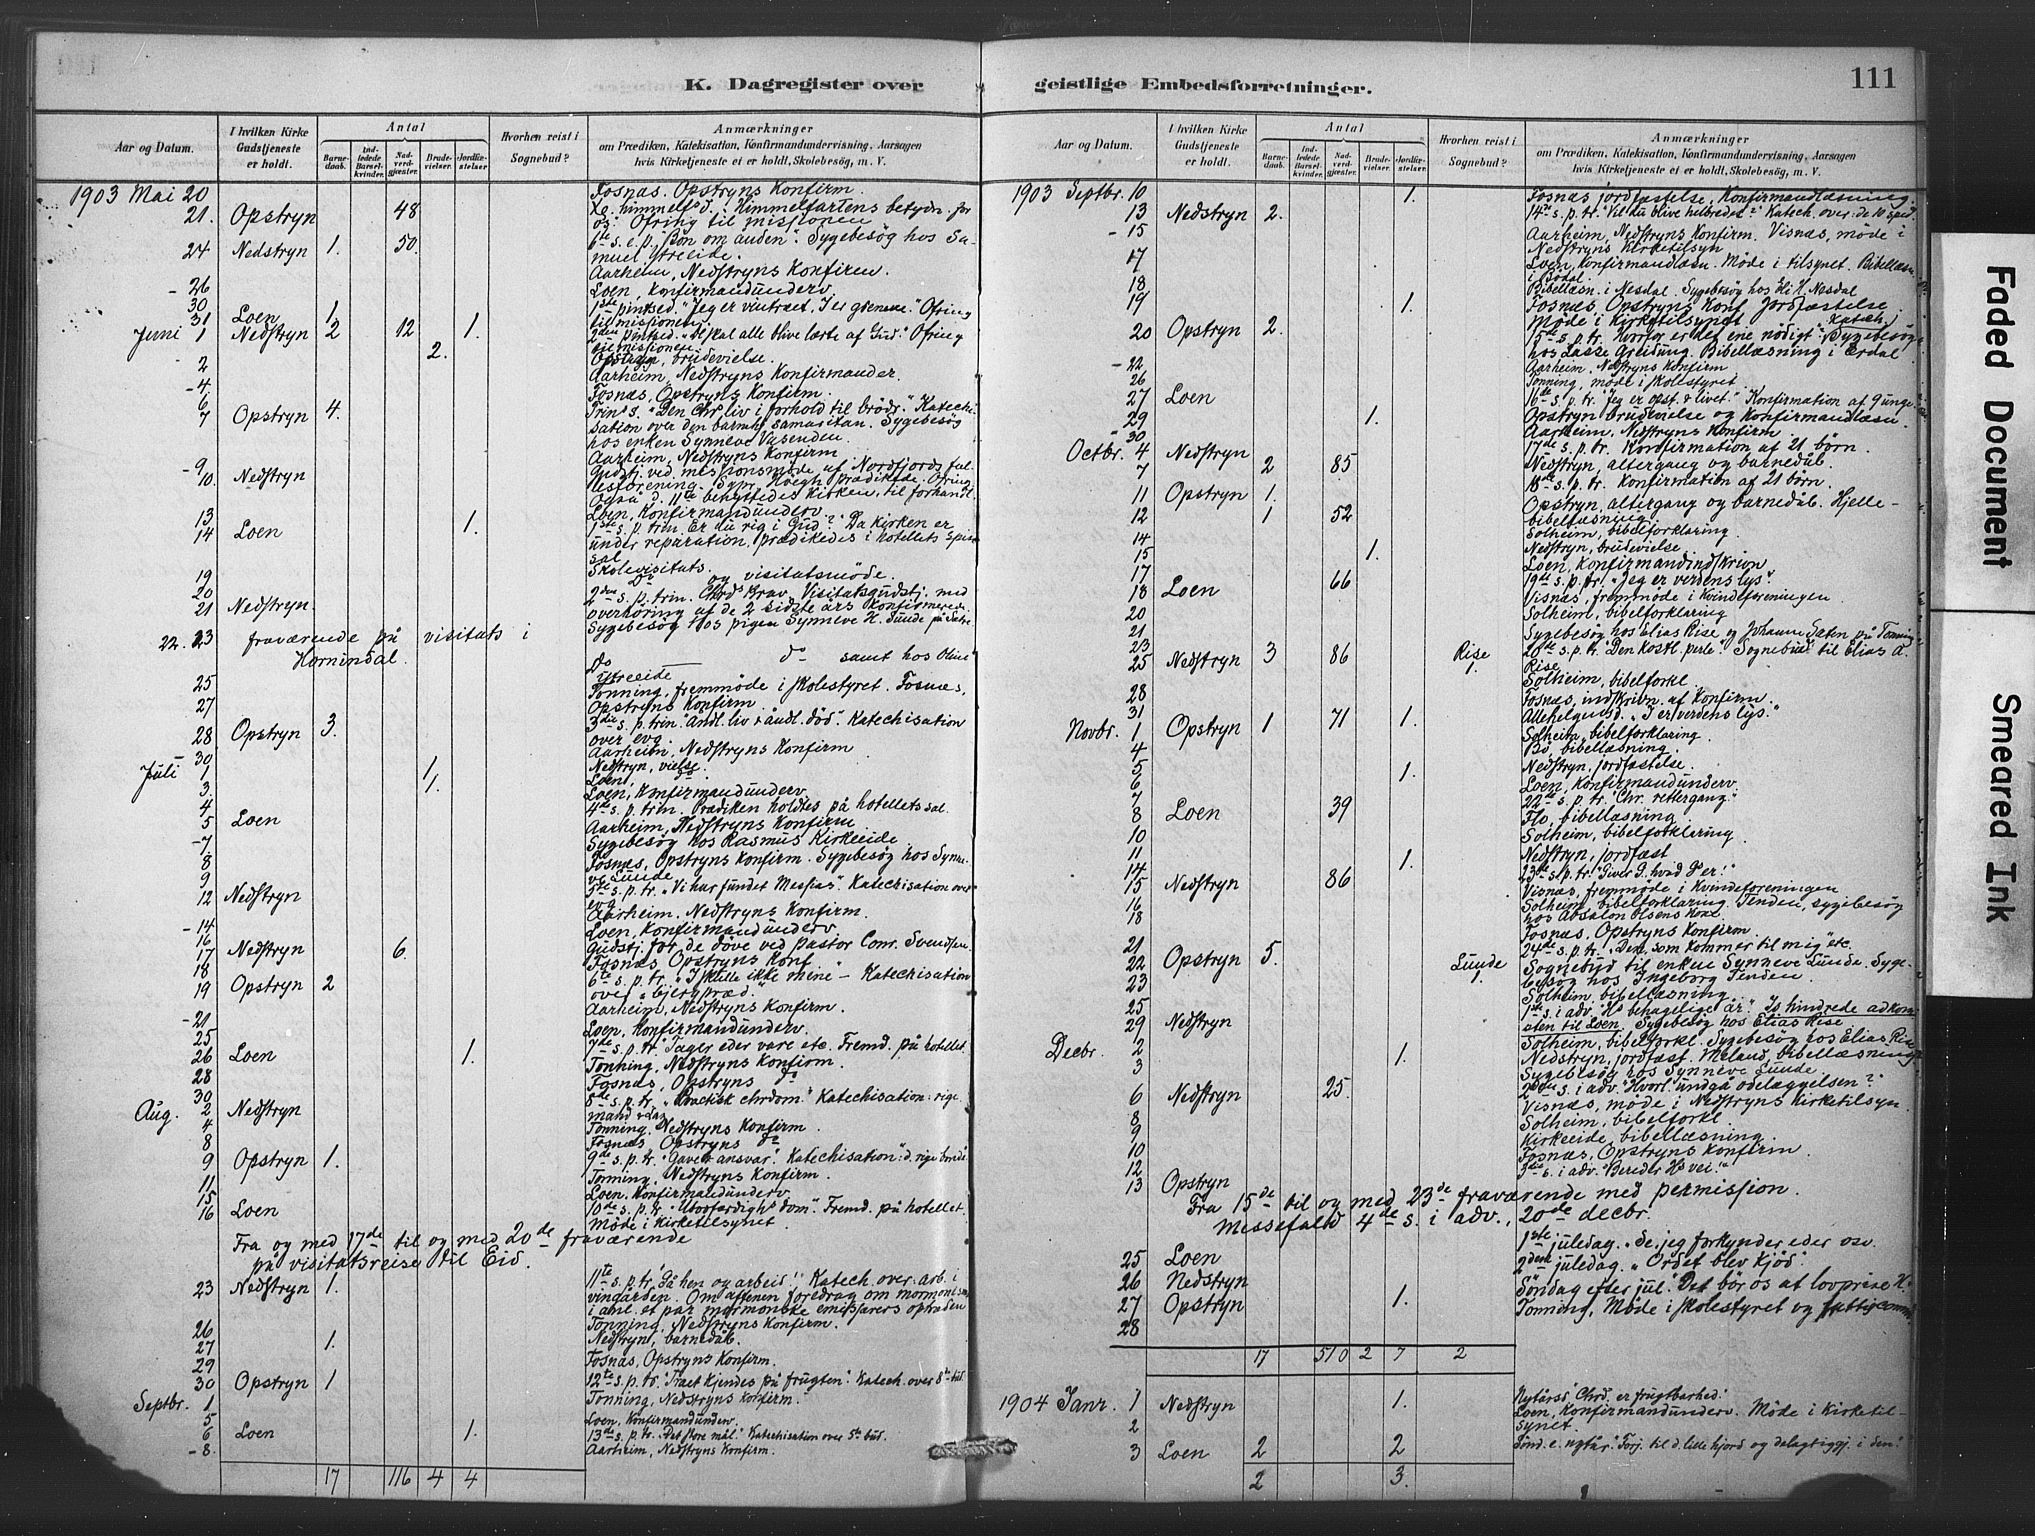 K. Dagregister over
Aar og Datum.
I hvilken Kirke Gudstjeneste er holdt.
Antal
Barnedaab.
Indledede Barselkvinder.
Nadverdgjæster.
Brudevielser.
Jordfæstelser
Hvorhen reist i Sognebud?
Anmærkninger
om Prædiken, Katekisation, Konfirmandundervisning, Aarsagen
hvis Kirketjeneste ei er holdt, Skolebesøg, m. V.
1903 Mai 20 Fosnæs. Opstryns Konfirm.
21. Opstryn 48 himmelfartens betydn. for
os. Ofring til missionen
24 Nedstryn 1. 50. 6te s. e. p. "Bøn om anden". Sygebesøg hos Samuel Ytreeide.
- 26 Aarheim, Nedstryns Konfirm.
30 Loen, Konfirmandunderv.
31 Loen 1 1ste pintsed. "Jeg er vintræet, I er grenene." Ofring
til missionen.
Juni 1 Nedstryn 2 12 1. 2den pintsed. "De skal alle blive lærte af Gud." Ofring
til missionen.
2 2. Opstryn, brudevielse.
- 4. Aarheim, Nedstryns Konfirmander.
6 Fosnæs, Opstryns Konfirm.
7 Opstryn 4. Trin s. "Den Chr. liv i forhold til brødr." Katechisation over den barmh. samaritan. Sygebesøg
hos enken Synneve Vasenden.
- 9 Aarheim, Nedstryns Konfirm
10. Nedstryn Gudstj. ved missionsmøde af Nordfjords fællesforening. Sypr. Høegh prædikede. Ofring.
Også d. 11te benyttedes kirken, til forhandl.
13 Loen, Konfirmandunderv.
14 Loen 1. 1ste s. p. trin. Er du rig i Gud? Da kirken er
under reparation, prædikedes i hotellets spisesal
19 Skolevisitats.
20 Do og visitatsmøde.
21 Nedstryn. 2den s. p. trin. Visitatsgudstj. med
overhøring af de 2 sidste års konfirmerede.
Sygebesøg hos pigen Synneve H. Sunde på Sætre
22. 23 fraværende på visitats i
Hornindal.
25 Do do samt hos Oline
Ytreeide
27 Tonning, fremmøde i skolestyret. Fosnæs,
Opstryns Konfirm.
28 Opstryn 3. 3die s. p. trin. "Åndl. liv & åndl. død". Katechisation
over evg.
30 Aarheim, Nedstryns Konfirm
Juli 1 1. Nedstryn, vielse.
3. 1. Loen, do.
4 Loen, Konfirmandunderv.
5 Loen 4de s. p. trin. Prædiken holdtes på hotellets sal.
- 7. Aarheim, Nedstryns Konfirm
8 Sygebesøg hos Rasmus Kirkeeide.
9 Fosnæs, Opstryns Konfirm. Sygebesøg hos Synneve Sunde
12 Nedstryn 5te s. p. tr. "Vi har fundet Messias". Katechisation over
evg
- 14 Aarheim. Nedstryns Konfirm.
16 Loen, Konfirmandunderv.
17 Nedstryn 6. Gudstj. for de døve ved pastor Conr. Svendsen.
18 Fosnæs Opstryns Konf.
19 Opstryn 2 6te s. p. tr. "I skulle ikke mene – Katechisation
over "bjergpræd."
- 21 Aarheim, Nedstryns Konfirm.
25 Loen, Konfirmandunderv.
26 Loen 1. 7de s. p. tr. "Tager eder vare etc. Fremd. på hotellet
28 Tonning, Nedstryns Konfirm.
30 Fosnæs, Opstryns do
Aug. 2 Nedstryn 8de s. p. tr. "Practisk chrdom." Katechisation: rige
mand & Laz.
4 Tonning, Nedstryns Konfirm.
8 Fosnæs, Opstryns do
9 Opstryn 1. 9de s. p. tr. "Gave & ansvar". Katechisation: d. rige bonde
11 Tonning, Nedstryns Konfirm.
15 Loen. Konfirmandunderv.
16 Loen 10de s. p. tr. "Ubodfærdighs dom". Fremd. på hotellet.
Møde i Kirketilsynet.
Fra og med 17de til og med 20de fraværende
på visitatsreise til Eid.
23 Nedstryn 1. 11te s. p. tr. "Gå hen og arbeid!" Katech. over: arb. i
vingården. Om aftenen foredrag om mormonism
i anl. et par mormonske emissærers optræden
26 Tonning, Nedstryns Konfirm.
27 1. Nedstryn, barnedåb.
29 Fosnæs, Opstryns Konfirm.
30 Opstryn 1 12te s. p. tr. "Træet kjendes på frugten". Katech. over 8de bud.
Septbr. 1 Tonning, Nedstryns Konfirm.
5 Loen, Konfirmandunderv.
6 Loen 1. 13de s. p. tr. "Det store mål". Katechisation over 5te bud.
- 8. Aarheim, Nedstryns Konfirm.
17 116 4 4
geistlige Embedsforretninger.
111
Aar og Datum.
I hvilken Kirke Gudstjeneste er holdt.
Antal
Barnedaab.
Indledede Barselkvinder.
Nadverdgjæster.
Brudevielser.
Jordfæstelser.
Hvorhen reist i Sognebud?
Anmærkninger
om Prædiken, Katekisation, Konfirmandundervisning, Aarsagen
hvis Kirketjeneste ei er holdt, Skolebesøg, m. V.
1903 Septbr. 10 1. Fosnæs jordfæstelse, Konfirmandlæsning.
13 Nedstryn 2. 14de s. p. tr. "Vil du blive helbredet?" Katech. over: de 10 sped.
- 15 Aarheim, Nedstryns Konfirm. Visnæs, møde i
Nedstryns Kirketilsyn
17 Loen, Konfirmandlæsn. Møde i tilsynet. Bibellæsn.
i Bødal
18 Bibellæsn. i Nesdal. Sygebesøg hos Nesdal
19 1. Fosnæs Opstryns Konf. Jordfæstelse.
Møde i Kirketilsynet.
20 Opstryn 2. 15de s. p. tr. "Hvorfor er det ene nødigt". Katech. Sygebesøg
hos Lasse Greidung. Bibellæsning i Erdal
- 22 Aarheim. Nedstryns Konfirm
26 Tonning, møde i skolestyret.
27 Loen 16de s. p. tr. "Jeg er opst. & livet". Konfirmation af 9 unge.
29 1. Opstryn brudevielse og konfirmandlæsn.
- 30 Aarheim, Nedstryns Konfirm
Octbr. 4 Nedstryn 17de s. p. tr. Konfirmation af 21 børn.
7 2 85 Nedstryn, altergang og barnedåb.
11 Opstryn 1. 18de s. p. tr. Konfirmation af 21 børn.
12 1 52 Opstryn, altergang og barnedåb. Hjelle-
bibellæsning
14 Solheim, bibelforklaring.
15 1. Nedstryn, brudevielse
17 Loen, Konfirmandindskrivn
18 Loen 66 19de s. p. tr. "Jeg er verdens lys".
20 Visnæs, fremmøde i Kvindeforeningen
21 Solheim, bibelforklaring
23 Sygebesøg hos Elias Rise og Johanne Sæten på Tonning
25 Nedstryn 3 86 Rise 1. 20de s. p. tr. "Den kostl. perle". Sognebud til Elias A.
Rise.
28 Solheim, bibelforkl.
31 Fosnæs, indskribn. af Konfirm.
Novbr. 1 Opstryn 1 71 1. Allehelgensd. "I er verdens lys."
4 Solheim, bibelforklaring.
5 Bø, bibellæsning.
6 1. Nedstryn, jordfæstelse.
7 Loen, Konfirmandunderv.
8 Loen 39 22de s. p. tr. "Chr. rettergang."
10 Flo, bibellæsning
11 Solheim, bibelforklaring.
14 1. Nedstryn, jordfæst
15 Nedstryn 86 23de s. p. tr. "Giver G. hvad G's er!"
16 Visnæs, fremmøde i Kvindeforeningen
18 Solheim, bibelforklaring. Tenden, sygebesøg
hos Absalon Olsens Kone.
21 Fosnæs, Opstryns Konfirm
22 Opstryn 5. 24de s. p. tr. "Den, som kommer til mig" etc.
23 Sunde 1. Sognebud til enken Synneve Sunde. Sygebesøg hos Ingeborg Tenden.
25 Solheim, bibellæsning
29 Nedstryn 1ste s. i adv. "Hs behagelige år." Is hindrede adkomsten til Loen. Sygebesøg hos Elias Rise
Decbr. 2 Solheim, bibelforkl. Sygebesøg hos Elias Rise
3 1. Nedstryn, jordfæst. Meland, bibellæsning
Sygebesøg hos Synneve Sunde.
6 Nedstryn 25. 2den s. i adv. "Hvorl. undgå ødelæggelsen?"
8 Visnæs, møde i Nedstryns Kirketilsyn.
9 Solheim, bibelforkl.
10 Kirkeeide, bibellæsning.
12 Fosnæs, Opstryns Konfirm.
13 Opstryn 3die s. i adv. "Bereder Hs vei!"
Fra 15de til og med 23de fraværende med permission.
Messefald 4de s. i adv., 20de decbr.
25 Loen 1ste juledag. "Se, jeg forkynder eder osv.
26 Nedstryn 2den juledag. "Ordet blev kjød".
27 Opstryn 1. Søndag efter jul. "Det bør os at lovprise H."
28 Tonning, Møde i skolestyret og fattigcomm.
17 510 2 7 2
1904 Janr. 1 Nedstryn 1. Nytårsd. "Chrd. er frugtbarhed."
2 Loen, Konfirmandunderv. Møde i Kirketil-
synet.
3 Loen 2 2 Sønd. e. nytår. "Forj. til d. lille hjord og delagtiggj. i den."
2 3.
Faded Document
Smeared Ink